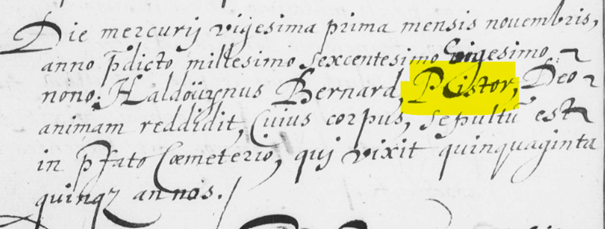 Die mercurij vigesima prima mensis novembris,
anno p̄dicto millesimo sexcentesimo vigesimo
nono, Haldouynus Bernard, Pistor, Deo
animam reddidit, Cuius corpus, sepultū est
in p̄fato Cœmeterio, qui vixit quinquaginta
quinqz annos./